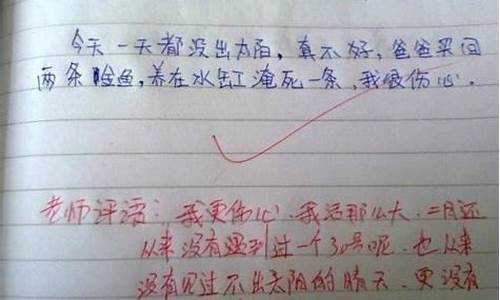 今天一天都没出太阳,真不好,爸爸买回
两条睑鱼,养在水缸淹死一条,我很伤心.
老师评语:我更伤心.我活那么大.二月还
从来没有遇到过一个30号呢.也从来
没有见过不出太阳的晴天.更没有